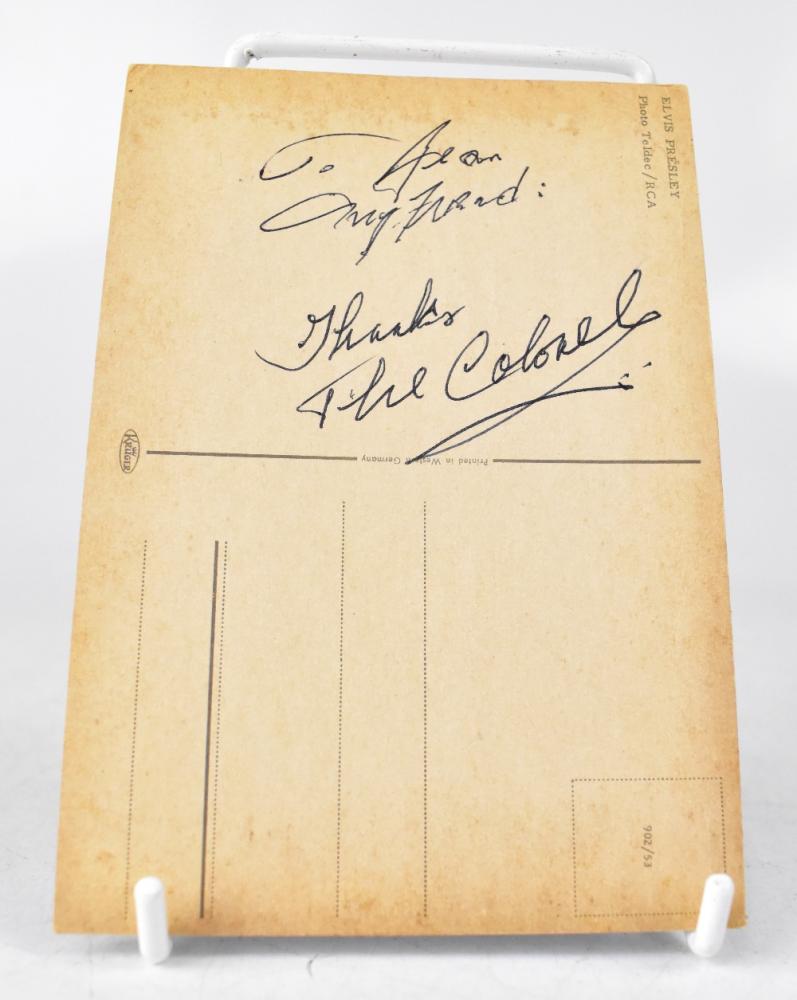 To Jean
my Friend:
Thanks
The Colonel
ELVIS PRESLEY
Photo Teldec/RCA
KRÜGER
Printed in Western Germany
902/53